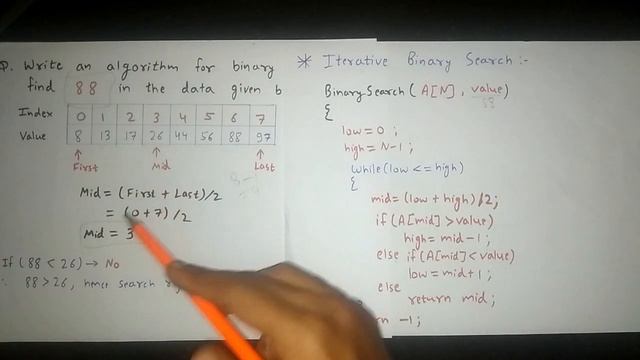 Q. Write an algorithm for binary
find 88 in the data given b
Index 0 1 2 3 4 5 6 7
Value 8 13 17 26 44 56 88 97
First Mid Last
Mid = (First + Last)/2
= (0+7)/2
Mid = 3
If (88 < 26) → No
∴ 88 > 26, hence search
* Iterative Binary Search :-
BinarySearch ( A[N], value)
88
{
low = 0 ;
high = N-1 ;
while (low <= high)
{
mid = (low + high)/2;
if (A[mid] > value)
high = mid - 1 ;
else if (A[mid] < value)
low = mid + 1 ;
else
return mid ;
n -1 ;